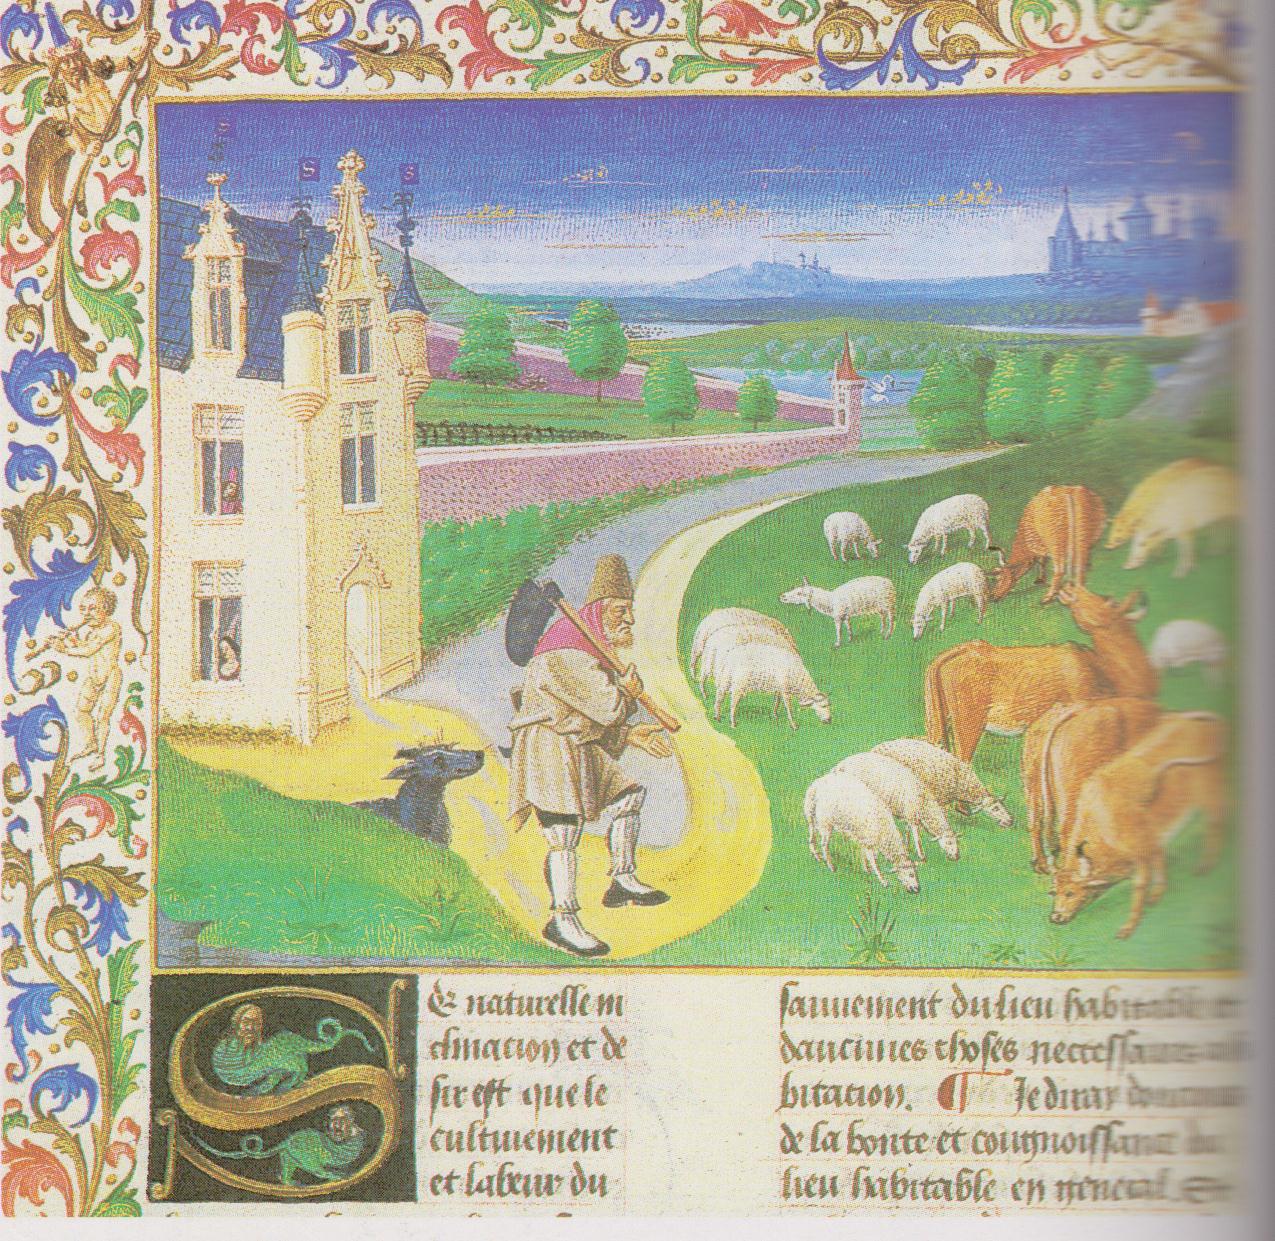 S
S
S
Se naturelle in
clination et de
sir est que le
cultiuement
et labeur du
sauuement du lieu habitable
daucunes choses neccessaires
bitation. ¶ Je diray
de la bonte et congnoissance du
lieu habitable en general. Et